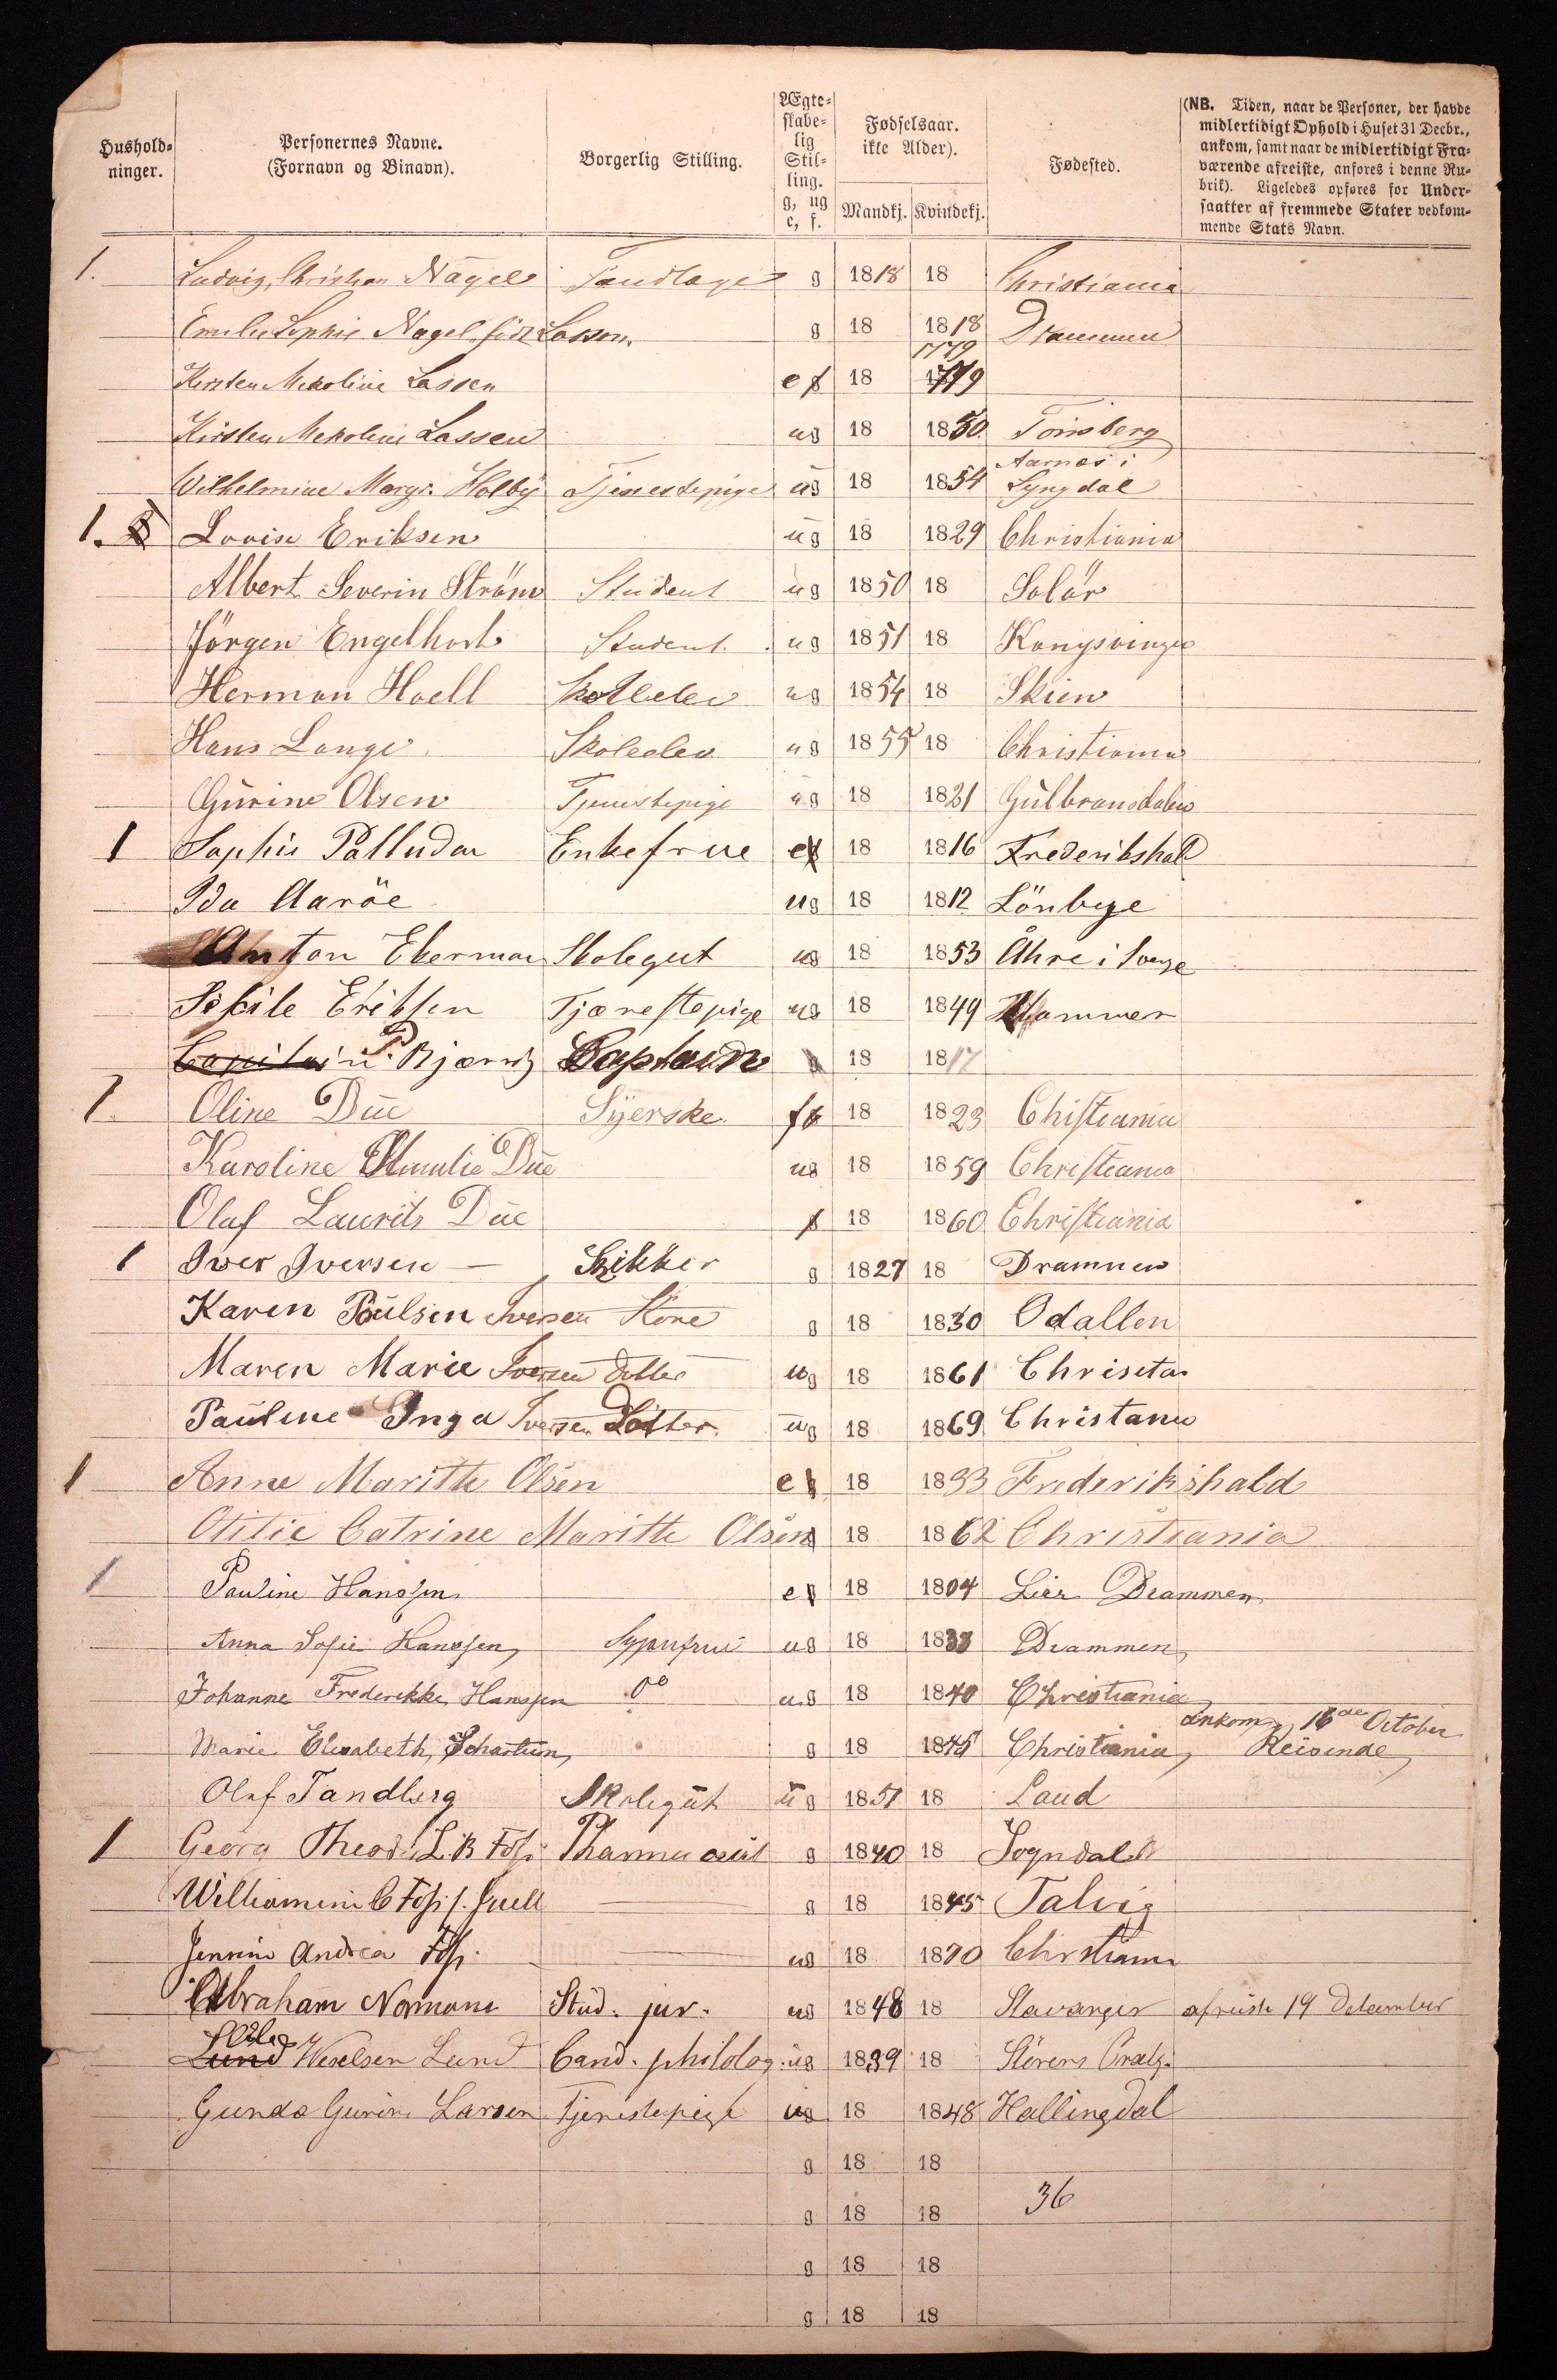 Hushold-
ninger.
Personernes Navne.
(Fornavn og Binavn).
Borgerlig Stilling.
Ægte-
skabe-
lig
Stil-
ling.
g, ug
e, f.
Fødselsaar.
ikke Alder).
Mandkj. Kvindekj.
Fødested.
(NB. Tiden, naar de Personer, der havde
midlertidigt Ophold i Huset 31 Decbr.,
ankom, samt naar de midlertidigt Fra-
værende afreiste, anføres i denne Ru-
brik). Ligeledes opføres for Under-
saatter af fremmede Stater vedkom-
mende Stats Navn.
1. Ludvig Christian Nagel Tandlæge g 1818 18 Christiania
Emilie Sophie Nagel född Lasson g 18 1818 Drammen
1779
Kirsten Mekoline Lassen e 18 1779
Kirsten Mekoline Lassen ug 18 1850 Tönsberg
Aarnæs i
Wilhelmine Margr. Holby Tjenestepige ug 18 1854 Lyngdal
1. Lovise Eriksen ug 18 1829 Christiania
Albert Severin Ström Student ug 1850 18 Solör
Jörgen Engelhart Student ug 1851 18 Kongsvinger
Herman Hoell Skoleelev ug 1854 18 Skien
Hans Lange Skoleelev ug 1855 18 Christiania
Gurine Olsen Tjenestepige ug 18 1821 Gulbransdalen
1 Sophie Palludan Enkefrue e 18 1816 Frederikshald
Ida Aaröe ug 18 1812 Lönbyge
Anton Ekerman Skolegut ug 18 1853 Åhre i Sverge
Eriksen Tjærestepige ug 18 1849 Hammer
P. Bjærnt Captain g 18 1817
1. Oline Due Syerske f 18 1823 Chistiania
Karoline Amalie Due ug 18 1859 Christiania
Olaf Laurits Due 18 1860 Christiania
1 Iver Iversen — Snikker g 1827 18 Drammen
Karen Poulsen Iversen Kone g 18 1830 Odallen
Maren Marie Iversen Datter ug 18 1861 Chriseta
Pauline Inga Iversen Datter ug 18 1869 Christania
1 Anne Maritte Olsen e 18 1833 Frederikshald
Otilie Catrine Maritte Olsen 18 1862 Christiania
1 Pauline Hanssen e 18 1804 Lier Drammen
Anna Sofie Hanssen Syjomfrue ug 18 1838 Drammen
Johanne Frederikke Hanssen Do ug 18 1840 Christiania
ankom 16de October
Marie Elisabeth Schartum g 18 1845 Christiania Reisende
Olaf Tandberg Skolegut ug 1851 18 Land
1 Georg Theod. L. B Foss Pharmaceut g 1840 18 Sogndal
Williamine C Foss f. Juell g 18 1845 Talvig
Jennie Andrea Foss ug 18 1870 Christiania
Abraham Normann Stud. jur. ug 1848 18 Stavanger afreiste 19 December
Wexelsen Lund Cand. philolog. ug 1839 18 Störens Præstg.
Gunda Gurine Larsen Tjenestepige ug 18 1848 Hallingdal
g 18 18
g 18 18 36
g 18 18
g 18 18